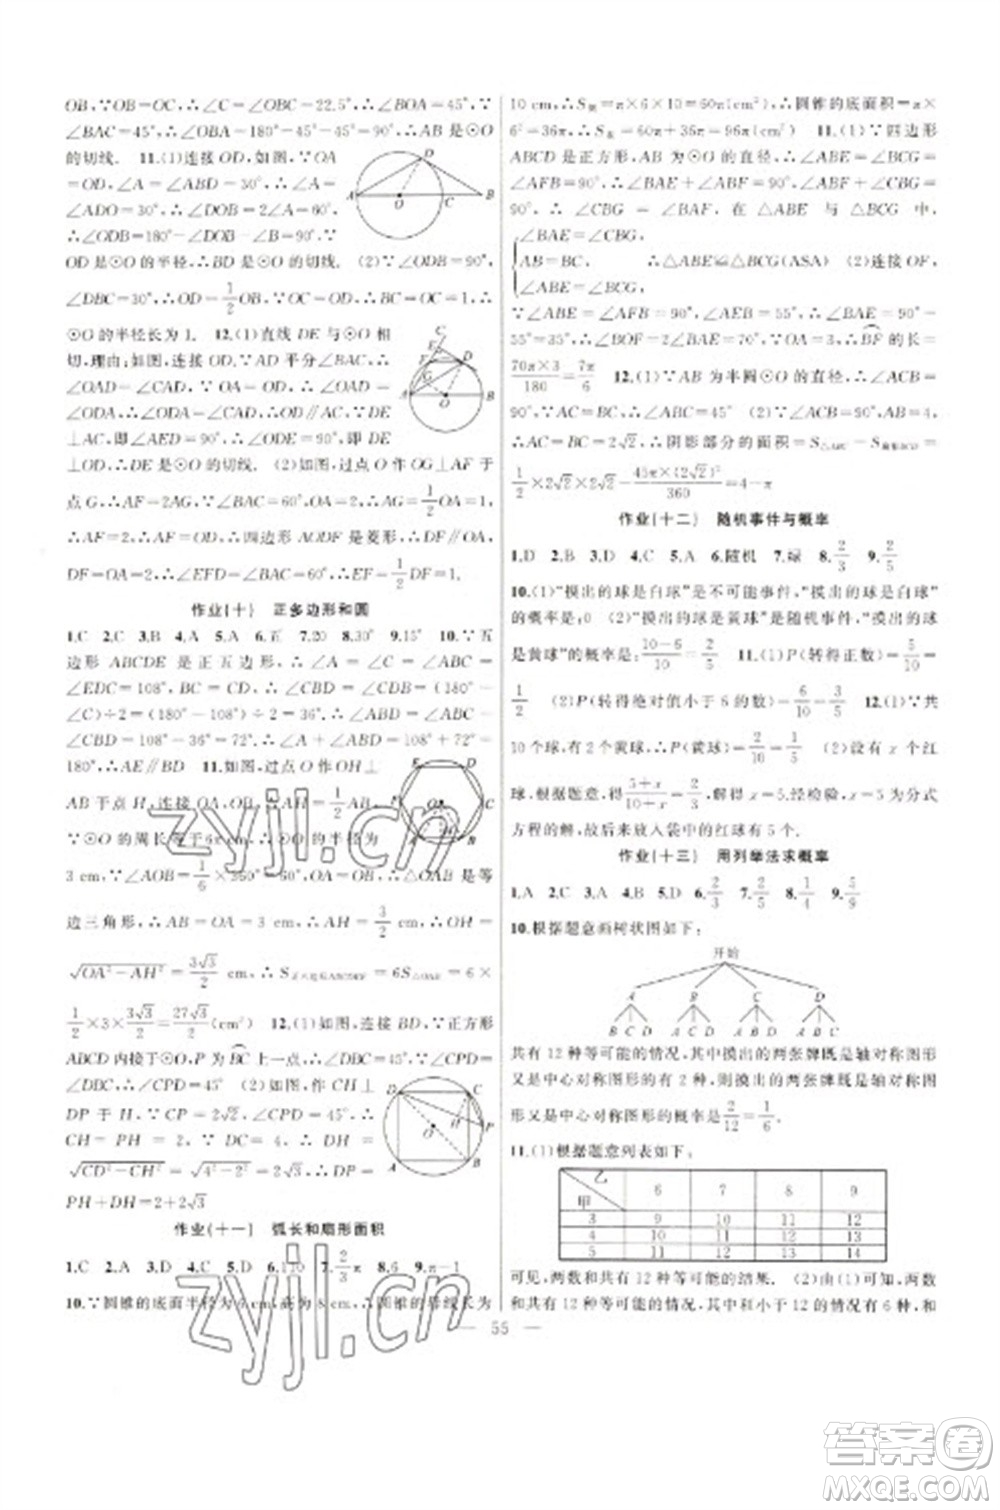 OB,∵OB=OC,∴∠C=∠OBC=22.5°,∴∠BOA=45°,∵
∠BAC=45°,∴∠OBA=180°-45°-45°=90°,∴AB是⊙O
的切线. 11.(1)连接OD,如图,∵OA
=OD,∴∠A=∠ADO=30°,∵∠A=
∠ADO=30°,∴∠DOB=2∠A=60°,
∴∠ODB=180°-∠DOB-∠B=90°,∵
OD是⊙O的半径,∴BD是⊙O的切线. (2)∵∠ODB=90°,
∠DBC=30°,∴OD=1/2OB,∵OC=OD,∴BC=OC=1,∴
⊙O的半径长为1. 12.(1)直线DE与⊙O相
切,理由:如图,连接OD.∵AD平分∠BAC,∴
∠OAD=∠CAD.∵OA=OD,∴∠OAD=
∠ODA,∴∠ODA=∠CAD,∴OD∥AC,∵DE
⊥AC,即∠AED=90°,∴∠ODE=90°,即DE
⊥OD,∴DE是⊙O的切线. (2)如图,过点O作OG⊥AF于
点G,∴AF=2AG,∵∠BAC=60°,OA=2,∴AG=1/2OA=1,
∴AF=2,∴AF=OD,∴四边形AODF是菱形,∴DF∥OA,
DF=OA=2,∴∠EFD=∠BAC=60°,∴EF=1/2DF=1.
作业(十) 正多边形和圆
1.C 2.C 3.B 4.A 5.A 6.五 7.20 8.30° 9.15° 10.∵五
边形ABCDE是正五边形,∴∠A=∠ABC=∠C=
∠EDC=108°,BC=DC,∴∠CBD=∠CDB=(180°-
∠C)÷2=(180°-108°)÷2=36°,∴∠ABD=∠ABC-
∠CBD=108°-36°=72°,∴∠A+∠ABD=108°+72°=
180°,∴AE∥BD 11.如图,过点O作OH⊥
AB于点H,连接AO,BO,∴AH=1/2AB,
∵⊙O的周长等于6π cm,∴⊙O的半径为
3 cm,∵∠AOB=1/6×360°=60°,∴△OAB是等
边三角形,∴AB=OA=3 cm,∴AH=3/2 cm,∴OH=
√(OA²-AH²)=3√3/2 cm,∴S正六边形ABCDEF=6S△OAB=6×
1/2×3×3√3/2=27√3/2(cm²) 12.(1)如图,连接BD,∵正方形
ABCD内接于⊙O,P为BC上一点,∴∠BDC=45°,∵∠CPD=
∠DBC,∴∠CPD=45° (2)如图,作CH⊥
DP于H,∵CP=2√2,∠CPD=45°,∴
CH=PH=2,∵DC=4,∴DH=
√(CD²-CH²)=√(4²-2²)=2√3,∴DP=
PH+DH=2+2√3
作业(十一) 弧长和扇形面积
1.C 2.A 3.D 4.D 5.C 6.120 7.2/3π 8.6 9.π-1
10.∵圆锥的底面半径为6 cm,高为8 cm,∴圆锥的母线长为
10 cm,∴S侧=π×6×10=60π(cm²),∴圆锥的底面积=π×
6²=36π,∴S表=60π+36π=96π(cm²) 11.(1)∵四边形
ABCD是正方形,AB为⊙O的直径,∴∠ABE=∠BCG=
∠AFB=90°,∴∠BAF+∠ABF=90°,∠ABF+∠EBF=
90°,∴∠EBF=∠BAF,在△ABE与△BCG中,
∠BAE=∠CBG,
AB=BC, ∴△ABE≌△BCG(ASA) (2)连接OF,
∠ABE=∠BCG,
∵∠ABE=∠AFB=90°,∠AEB=55°,∴∠BAE=90°-
55°=35°,∴∠BOF=2∠BAE=70°,∵OA=3,∴BF的长=
70π×3/180=7π/6 12.(1)∵AB为半圆⊙O的直径,∴∠ACB=
90°,∵AC=BC,∴∠ABC=45° (2)∵∠ABC=45°,AB=4,
∠ACB=90°,∴BC=2√2,∴阴影部分的面积=S△ABC-S扇形BCD=
1/2×2√2×2√2-45π×(2√2)²/360=4-π
作业(十二) 随机事件与概率
1.D 2.B 3.A 4.C 5.A 6.随机 7.绿 8.2/3 9.2/5
10.(1)“摸出的球是白球”是不可能事件,“摸出的球是白球”
的概率是:0 (2)“摸出的球是黄球”是随机事件,“摸出的球
是黄球”的概率是:10-6/10=2/5 11.(1)P(转得正数)=5/10=
1/2 (2)P(转得绝对值小于6的数)=6/10=3/5 12.(1)∵共
10个球,有2个黄球,∴P(黄球)=2/10=1/5 (2)设有x个红
球,根据题意,得5+x/10+x=2/3,解得x=5,经检验,x=5为分式
方程的解,故后来放入袋中的红球有5个.
作业(十三) 用列举法求概率
1.A 2.C 3.A 4.C 5.C 6.2/3 7.2/3 8.1/2 9.5/9
10.根据题意画树状图如下:
开始
A B C D
B C D A C D A B D A B C
共有12种等可能的情况,其中摸出的两张牌既是轴对称图形
又是中心对称图形的有2种,故摸出的两张牌既是轴对称图
形又是中心对称图形的概率是2/12=1/6.
11.(1)根据题意列表如下:
乙 甲 6 7 8 9
3 9 10 11 12
4 10 11 12 13
5 11 12 13 14
可见,两数和共有12种等可能的结果. (2)由(1)可知,两数
和共有12种等可能的情况,其中和小于12的情况有6种,和
55
zyjl.cn
zyjl.cn
答案卷
MXQE.COM